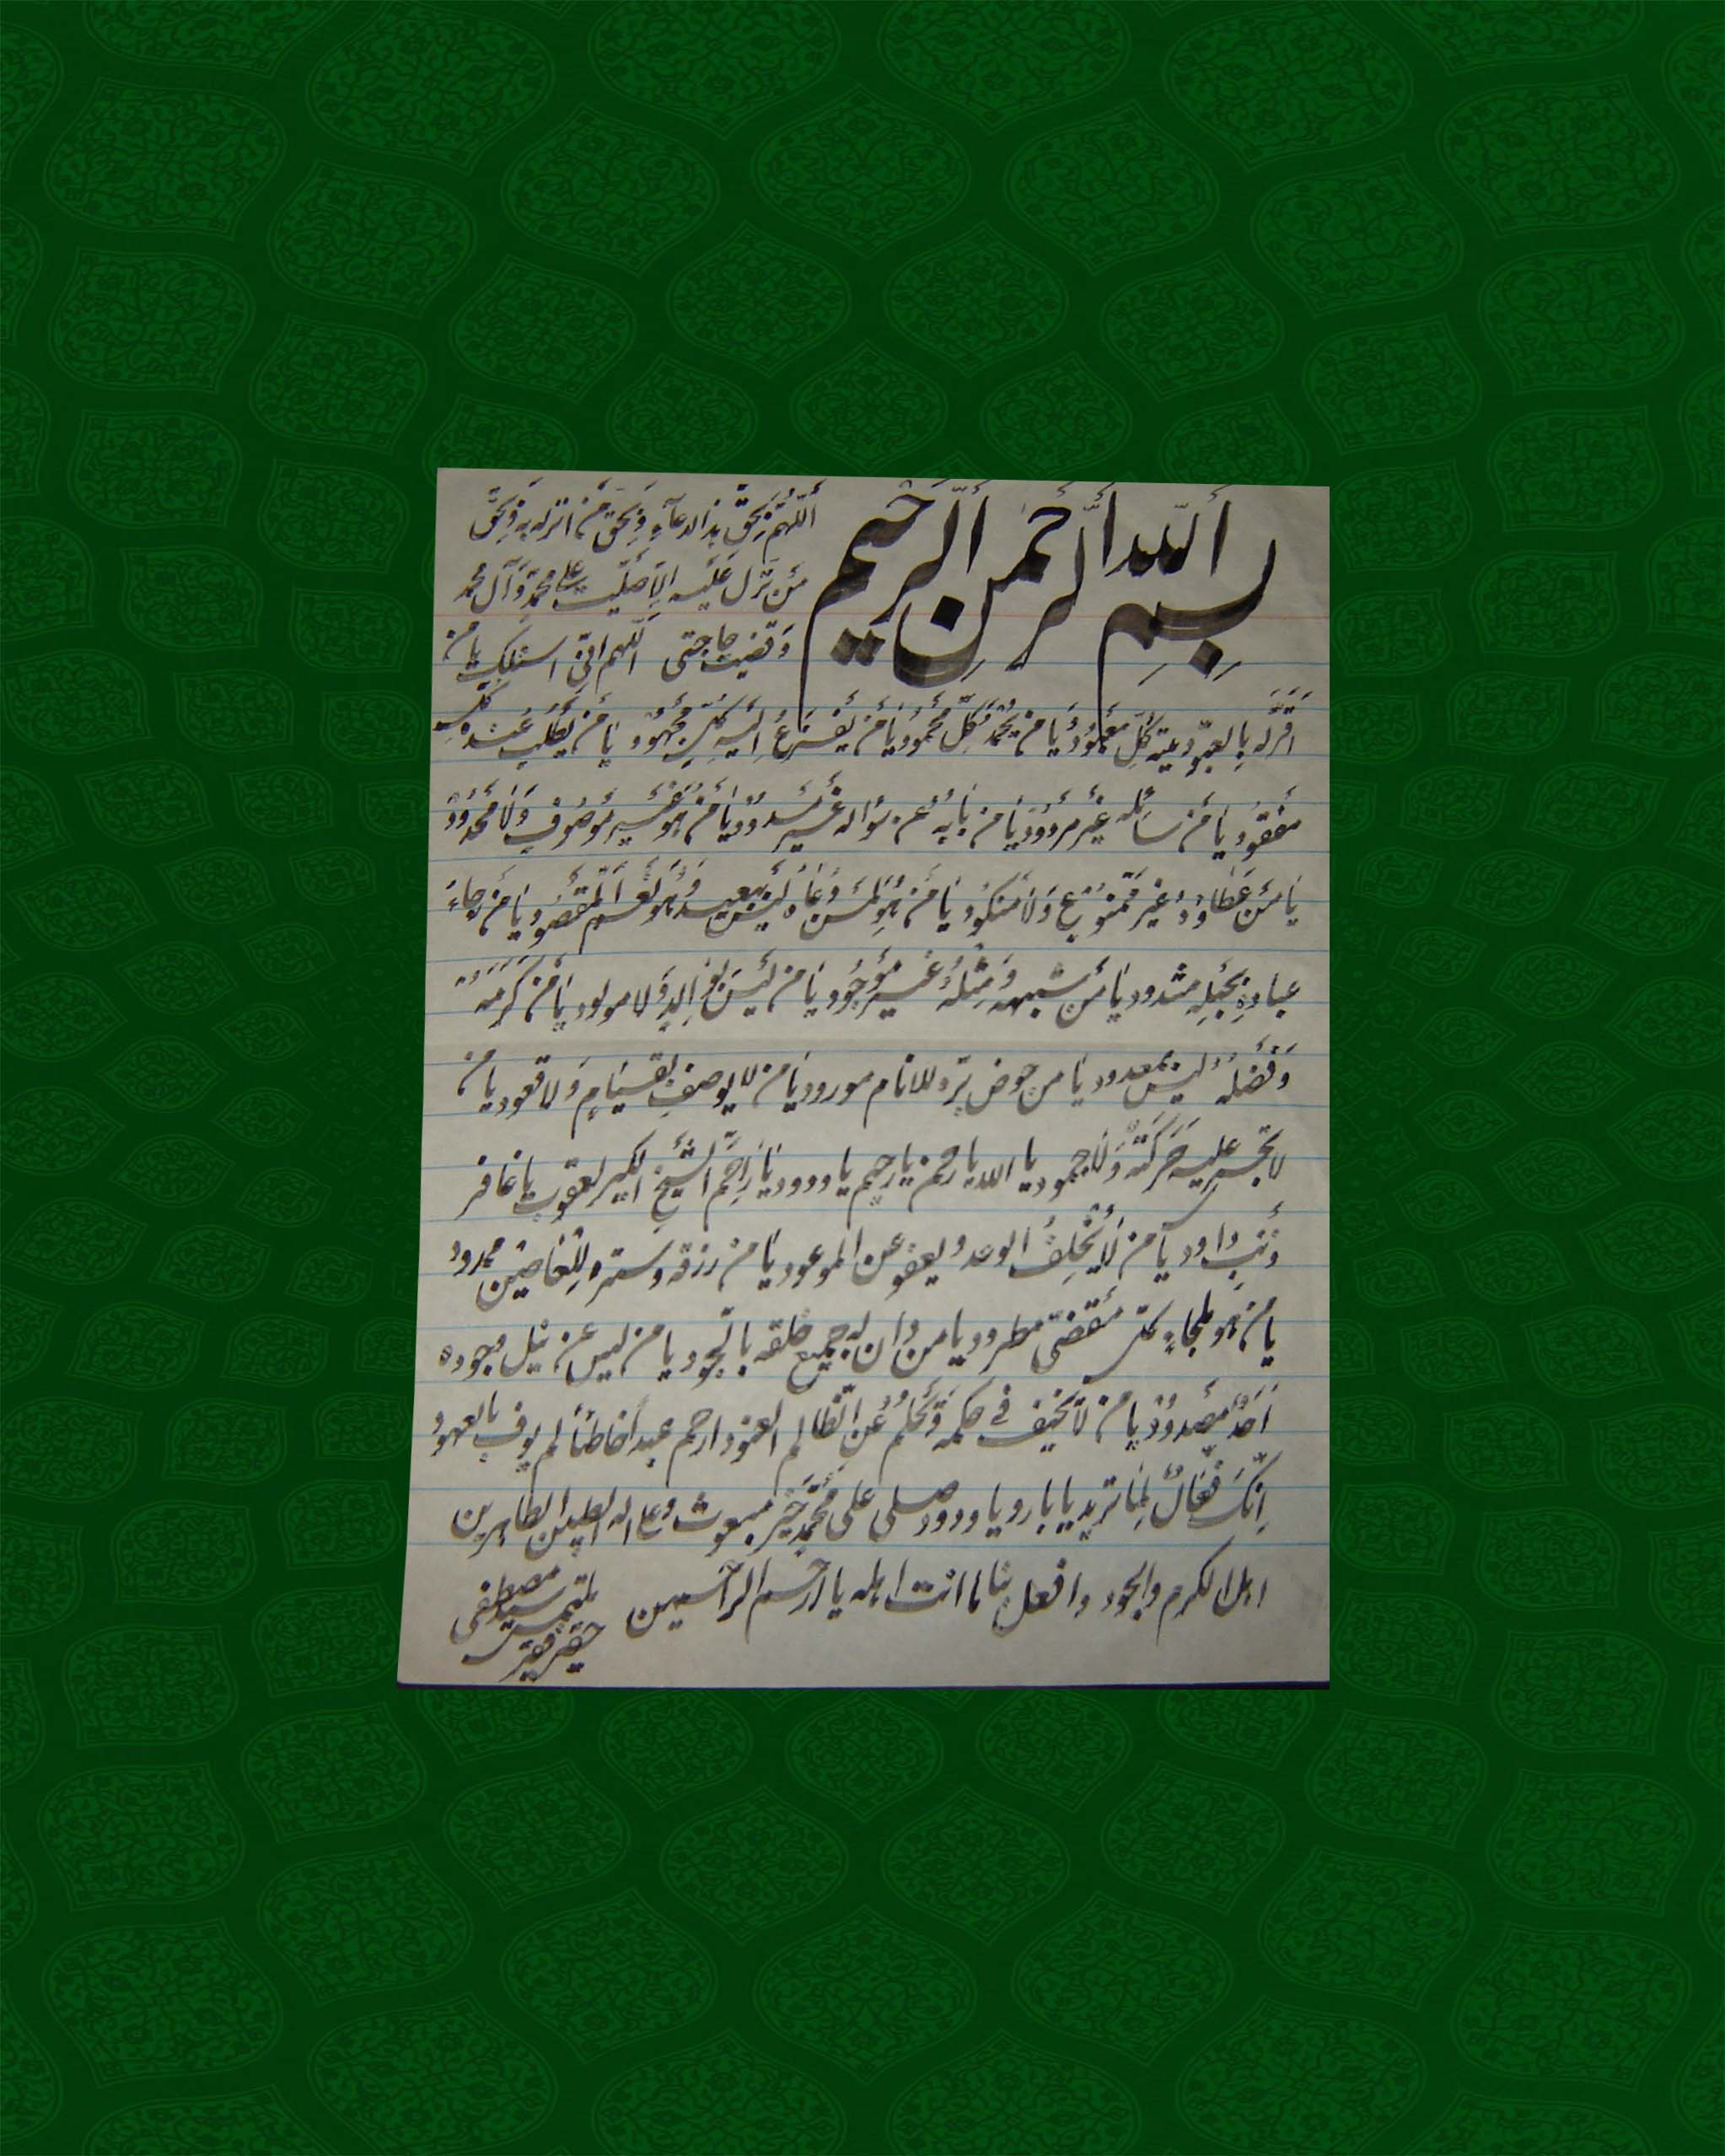 بِسْمِ اللهِ الرَّحْمنِ الرَّحیم
اَللّهُمَّ بِحَقِّ هذا الدعآءِ وَ بِحَقِّ مَن انزله به وَ بِحَقِّ
مَن نَزَلَ عَلَیه اِلّا صَلَّیت علی محمدٍ وَ آل محمد
وَ قَضیت حاجتی اللّهم انّی اسئلک یا من
اَقَرَّ لَه بِالعبودیة کُلِّ مَعْبُودٌ یَا من یَحْمَدُهُ کُلِّ مَحْمُودٌ یَا مَن یَفْزَعُ اِلَیه کلِّ مَجْهُودٌ یَا مَن یُطْلَب عِنده کل
مَفقوُد یَا مَن سَائله غَیْر مَردُودٌ یَا من بَابُه عَن سُؤاله غَیر مَسدودٌ یَا مَن هُوَ غَیر مَوصُوفٍ وَ لَا مَحدُودٌ
یَا مَن عَطاؤُه غیر مَمْنُوعٍ وَ لَا مَنکود یَا مَن هُوَ لِمَن دَعَاهُ لَیْسَ بِبَعید وَ هُوَ نِعْمَ الْمَقصُود یَا مَن رجاء
عباده بحَبلِه مشدود یَا مَن شبهه وَ مِثلهُ غیر مَوجُود یَا من لَیْسَ بوَالِدٍ وَ لا مولود یَا مَن کَرَمه
وَ فَضْلهُ لیس بمعدود یَا من حوض برّه للانام مورود یَا من لا یوصف بقیَامٍ وَ لا قعود یا من
لا تجری علیه حَرَکَةٌ وَ لا جمود یا الله یا رحمن یا رحیم یا ودود یَا رَاحِمَ الشَّیخِ الکبیر یعقوب یا غافر
ذَنْبِ داود یَا من لَا یُخْلِفُ الوعد و یعفو عن الموعود یَا من رزقه و ستره لِلعاصین ممدود
یا من هو ملجاءٍ کل مقضی مطرود یا من دان له جمیع خلقه بالسجود یا من لیس عن نیل وجوده
اَحَدٌ مَصدودٌ یا من لا یَحیف فی حکمه وَ یَحلُمُ عَنِ الظّالم العنود ارحم عبداً خاطئاً لم یوف بالعهود
اِنَّکَ فَعّالٌ لِمَا ترید یا بار و یا ودود صلی علی مُحمّدٍ خَیر مبعوث و علی اله الطیبین الطاهرین
اهل الکرم و الجود وافعل بنا ما انت اهله یا ارحم الراحمین
ملتمس
سید مصطفی
حقیر فقیر